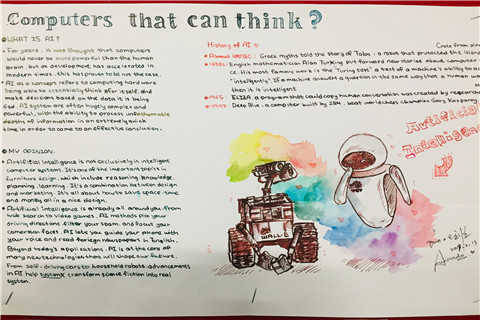 Computers that can think?
WHAT IS AI?
For years, it was thought that computers
would never be more powerful than the human
brain, but as development has accelerated in
modern times, this has proven to be not the case.
AI as a concept refers to computing hard ware
being able to essentially think for itself, and
make decisions based on the data it is being
fed. AI system are often hugely complex and
powerful, with the ability to process unfathomable
depths of information in an extremely quick
time in order to come to an effective conclusion.
MY OPINION:
Artificial intelligence is not exclusively in intelligent
computer system. It's one of the important topics in
furniture design, which include reasoning, knowledge,
planning, learning. It's a combination between design
and marketing. It's all about how to save space, time
and money all in a nice design.
Artificial intelligence is already all around you, from
web search to video games. AI methods plan your
driving directions, filter your spam, and focus your
cameras on faces. AI lets you guide your phone with
your voice and read foreign newspapers in English.
Beyond today's applications, AI is at the core of
many new technologies that will shape our future.
From self-driving cars to household robots, advancements
in AI help transform science fiction into real
system.
History of AI
About 400BC: Greek myths told the story of Talos, a robot that protected the island
Crete from
1950s: English mathematician Alan Turing put forward new ideas about computer
ce. His most famous work is the 'Turing test', a test of a machine's ability to
"intelligently". If a machine answers a question in the same way that a human
then it is intelligent
ELIZA, a program that could copy human conversation was created by research
Deep Blue, a computer built by IBM, beat world chess champion Gary Kasparov.
Artificial
Intelligence
WALL·E